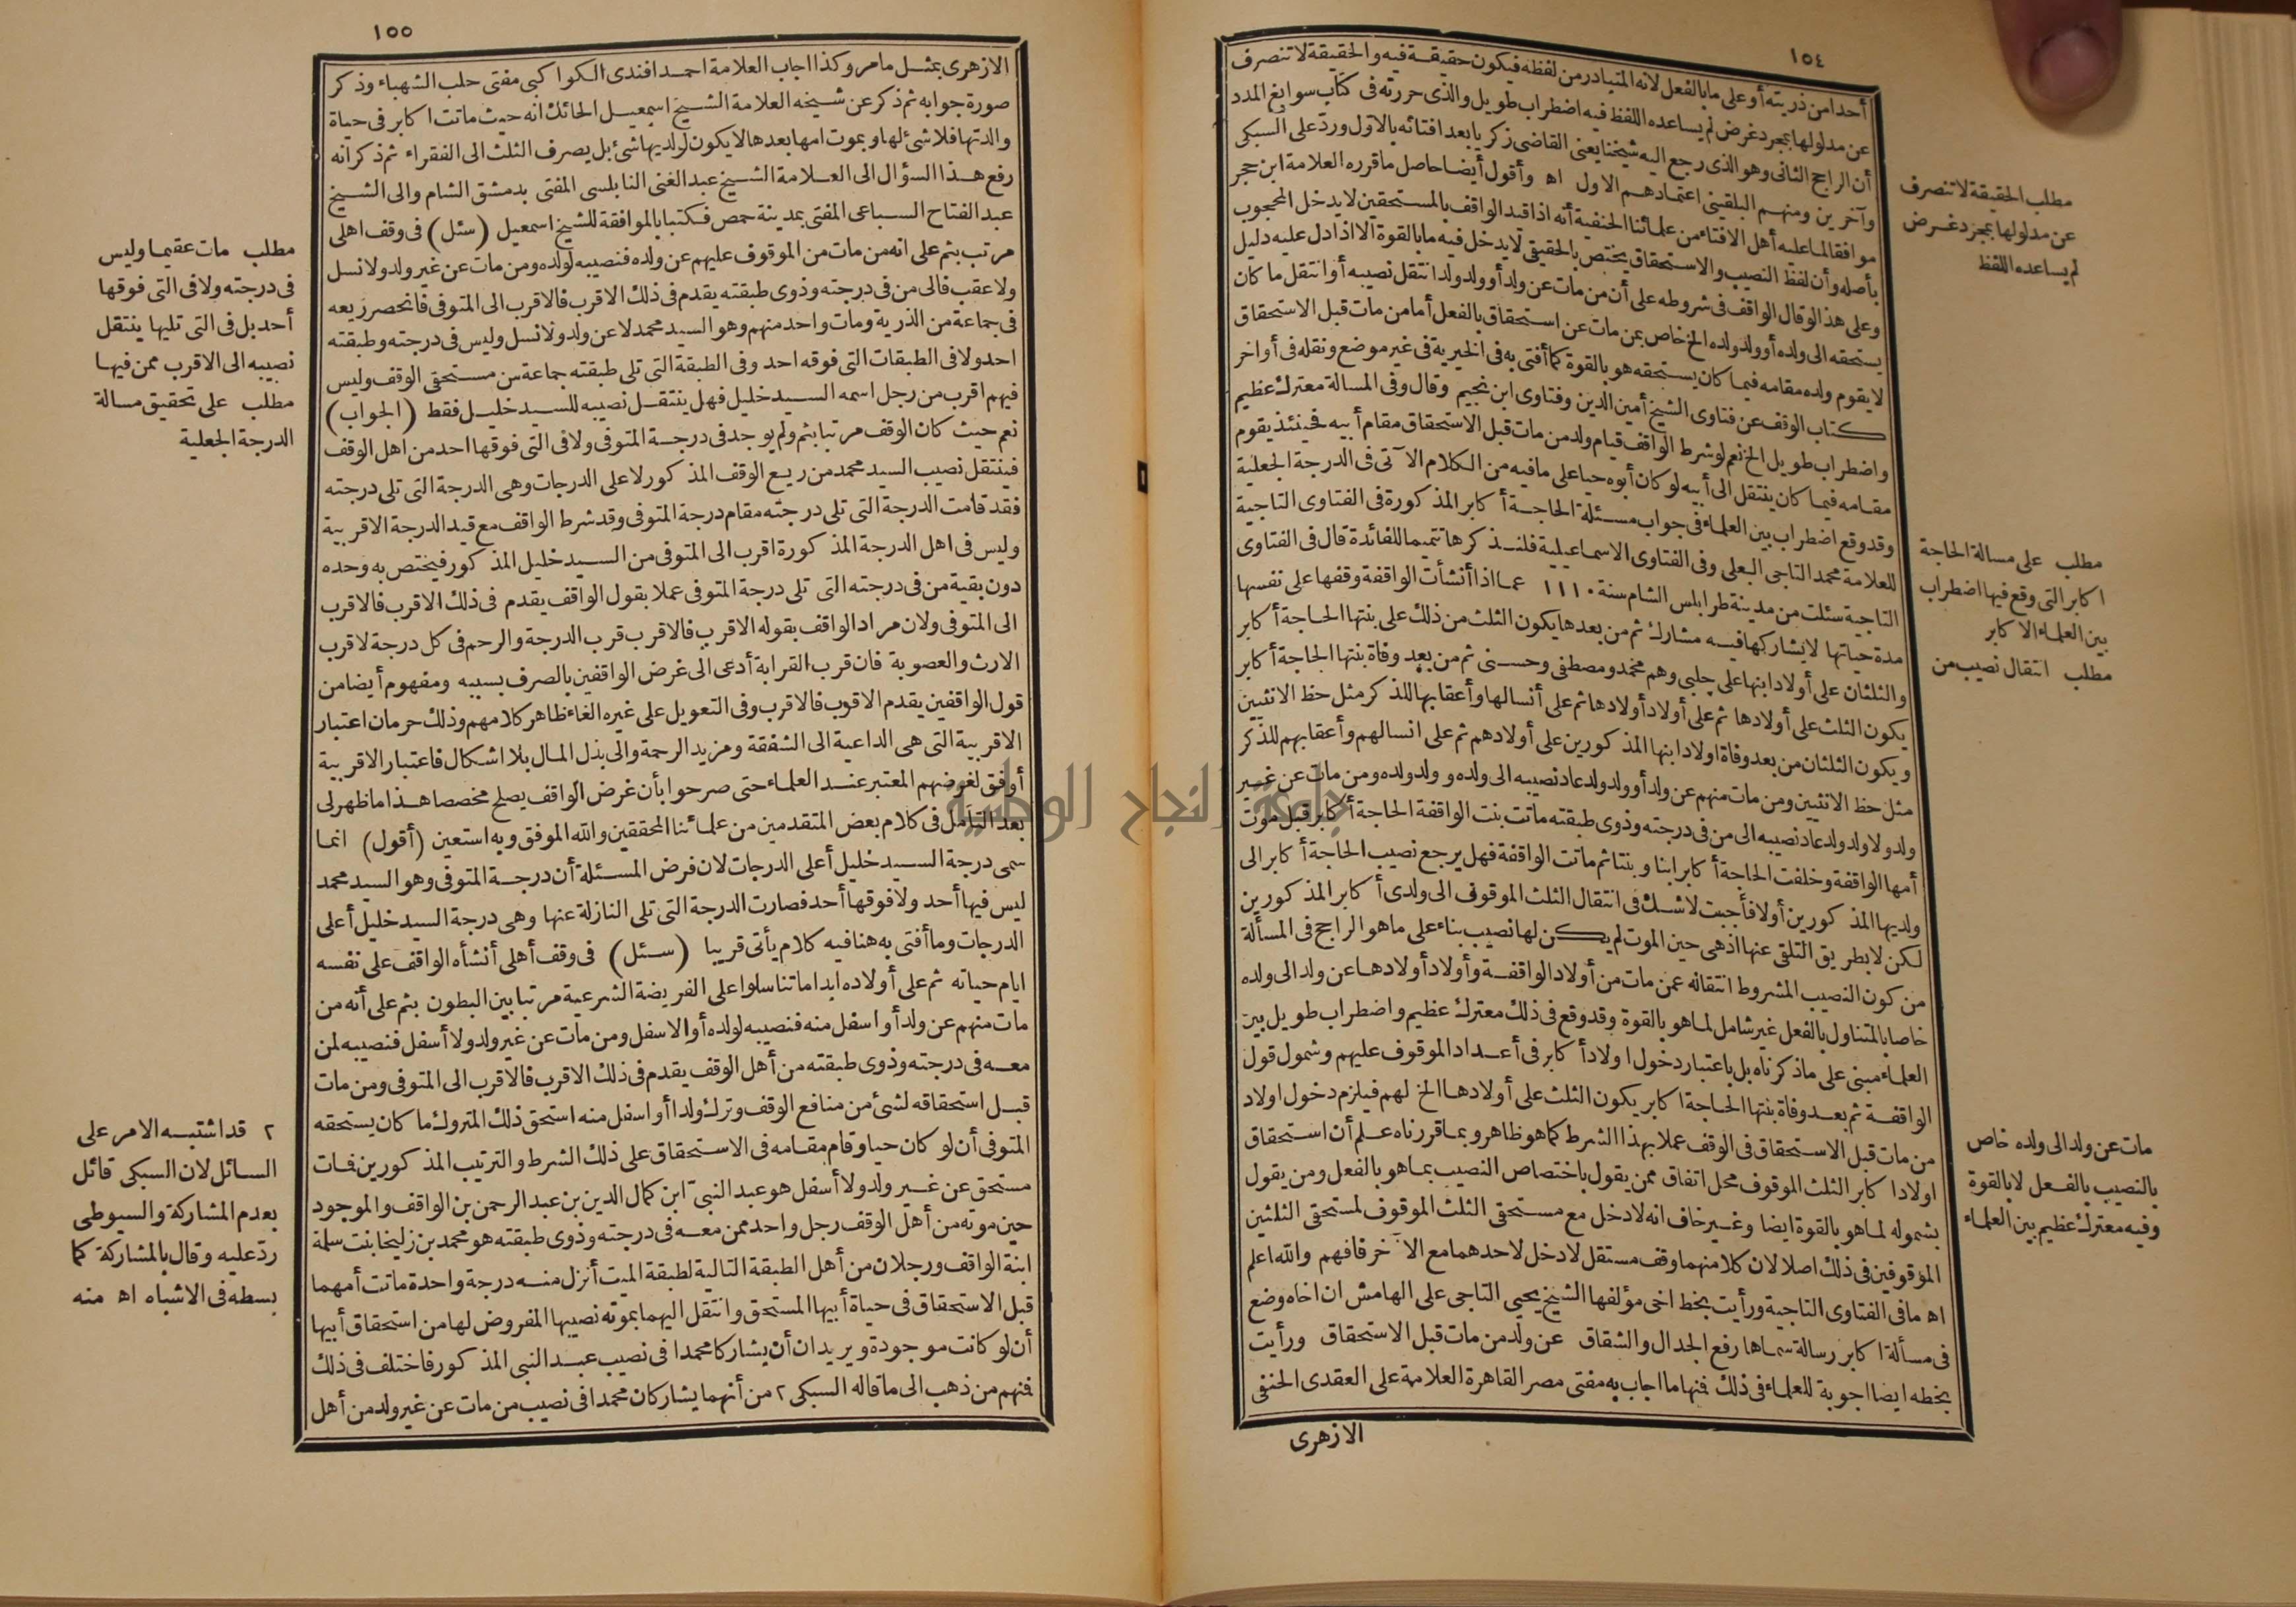 ١٥٤
أحدا من ذريته أو على ما بالفعل لانه المتبادر من لفظه فيكون حقيقة فيه والحقيقة لا تنصرف
عن مدلولها بمجرد غرض لم يساعده اللفظ فيه اضطراب طويل والذى حررته فى كتاب سوابغ المدد
أن الراجح الثانى وهو الذى رجع اليه شيخنا يعنى القاضى زكريا بعد افتائه بالاول ورد على السبكى
وآخرين ومنهم البلقينى اعتمادهم الاول اه وأقول أيضا حاصل ما قرره العلامة ابن حجر
موافق لما عليه أهل الافتاء من علمائنا الحنفية أنه اذا قيد الواقف بالمستحقين لا يدخل المحجوب
بأصله وأن لفظ النصيب والاستحقاق يختص بالحقيقى لا يدخل فيه ما بالقوة الا اذا دل عليه دليل
وعلى هذا لو قال الواقف فى شروطه على أن من مات عن ولد أو ولد ولد انتقل نصيبه أو انتقل ما كان
يستحقه الى ولده أو ولد ولده الخ خاص بمن مات عن استحقاق بالفعل أما من مات قبل الاستحقاق
لا يقوم ولده مقامه فيما كان يستحقه هو بالقوة كما أفتى به فى الخيرية فى غير موضع ونقله فى أواخر
كتاب الوقف عن فتاوى الشيخ أمين الدين وفتاوى ابن نجيم وقال وفى المسالة معترك عظيم
واضطراب طويل الخ نعم لو شرط الواقف قيام ولد من مات قبل الاستحقاق مقام أبيه فحينئذ يقوم
مقامه فيما كان ينتقل الى أبيه لو كان أبوه حيا على ما فيه من الكلام الآتى فى الدرجة الجعلية
وقد وقع اضطراب بين العلماء فى جواب مسئلة الحاجة أكابر المذكورة فى الفتاوى التاجية
للعلامة محمد التاجى البعلى وفى الفتاوى الاسماعيلية فلنذكرها تتميما للفائدة قال فى الفتاوى
التاجيه سئلت من مدينة طرابلس الشام سنة ١١١٠ عما اذا أنشأت الواقفة وقفها على نفسها
مدة حياتها لا يشاركها فيه مشارك ثم من بعدها يكون الثلث من ذلك على بنتها الحاجة أكابر
والثلثان على أولاد ابنها على چلبى وهم محمد ومصطفى وحسنى ثم من بعد وفاة بنتها الحاجة أكابر
يكون الثلث على أولادها ثم على أولاد أولادها ثم على أنسالها وأعقابها للذكر مثل حظ الانثيين
ويكون الثلثان من بعد وفاة اولاد ابنها المذكورين على أولادهم ثم على انسالهم وأعقابهم للذكر
مثل حظ الانثيين ومن مات منهم عن ولد أو ولد ولد عاد نصيبه الى ولده وولد ولده ومن مات عن غير
ولد ولا ولد ولد عاد نصيبه الى من فى درجته وذوى طبقته ماتت بنت الواقفة الحاجة أكابر قبل موت
أمها الواقفة وخلفت الحاجة أكابر ابنا وبنتا ثم ماتت الواقفة فهل يرجع نصيب الحاجة أكابر الى
ولديها المذكورين أولا فأجبت لا شك فى انتقال الثلث الموقوف الى ولدى أكابر المذكورين
لكن لا بطريق التلقى عنها اذ هى حين الموت لم يكن لها نصيب بناء على ما هو الراجح فى المسألة
من كون النصيب المشروط انتقاله عمن مات من أولاد الواقفة وأولاد أولادها عن ولد الى ولده
خاصا بالمتناول بالفعل غير شامل لما هو بالقوة وقد وقع فى ذلك معترك عظيم واضطراب طويل بين
العلماء مبنى على ما ذكرناه بل باعتبار دخول اولاد أكابر فى أعداد الموقوف عليهم وشمول قول
الواقفة ثم بعد وفاة بنتها الحاجة اكابر يكون الثلث على أولادها الخ لهم فيلزم دخول اولاد
من مات قبل الاستحقاق فى الوقف عملا بهذا الشرط كما هو ظاهر وبما قررناه علم أن استحقاق
اولاد اكابر الثلث الموقوف محل اتفاق ممن يقول باختصاص النصيب بما هو بالفعل ومن يقول
بشموله لما هو بالقوة ايضا وغير خاف انه لا دخل مع مستحقى الثلث الموقوف لمستحقى الثلثين
الموقوفين فى ذلك اصلا لان كلا منهما وقف مستقل لا دخل لاحدهما مع الآخر فافهم والله اعلم
اه ما فى الفتاوى التاجية ورأيت بخط اخى مؤلفها الشيخ يحيى التاجى على الهامش ان اخاه وضع
فى مسألة اكابر رسالة سماها رفع الجدال والشقاق عن ولد من مات قبل الاستحقاق ورأيت
بخطه ايضا اجوبة للعلماء فى ذلك فنها ما اجاب به مفتى مصر القاهرة العلامة على العقدى الحنفى
الازهرى
مطلب الحقيقة لا تنصرف
عن مدلولها بمجرد غرض
لم يساعده اللفظ
مطلب على مسالة الحاجة
اكابر التى وقع فيها اضطراب
بين العلماء الاكابر
مطلب انتقال نصيب من
مات عن ولد الى ولده خاص
بالنصيب بالفعل لا بالقوة
وفيه معترك عظيم بين العلماء
١٥٥
الازهرى بمثل ما مر وكذا اجاب العلامة احمد افندى الكواكبى مفتى حلب الشهباء وذكر
صورة جوابه ثم ذكر عن شيخه العلامة الشيخ اسمعيل الحائك انه حيث ماتت اكابر فى حياة
والدتها فلا شئ لها وبموت امها بعدها لا يكون لولديها شئ بل يصرف الثلث الى الفقراء ثم ذكر انه
رفع هذا السؤال الى العلامة الشيخ عبد الغنى النابلسى المفتى بدمشق الشام والى الشيخ
عبد الفتاح السباعى المفتى بمدينة حمص فكتبا بالموافقة للشيخ اسمعيل (سئل) فى وقف اهلى
مرتب بثم على انه من مات من الموقوف عليهم عن ولده فنصيبه لولده ومن مات عن غير ولد ولا نسل
ولا عقب فالى من فى درجته وذوى طبقته يقدم فى ذلك الاقرب فالاقرب الى المتوفى فانحصر ريعه
فى جماعة من الذرية ومات واحد منهم وهو السيد محمد لا عن ولد ولا نسل وليس فى درجته وطبقته
احد ولا فى الطبقات التى فوقه احد وفى الطبقة التى تلى طبقته جماعة من مستحقى الوقف وليس
فيهم اقرب من رجل اسمه السيد خليل فهل ينتقل نصيبه للسيد خليل فقط (الجواب)
نعم حيث كان الوقف مرتبا بثم ولم يوجد فى درجة المتوفى ولا فى التى فوقها احد من اهل الوقف
فينتقل نصيب السيد محمد من ريع الوقف المذكور لاعلى الدرجات وهى الدرجة التى تلى درجته
فقد قامت الدرجة التى تلى درجته مقام درجة المتوفى وقد شرط الواقف مع قيد الدرجة الاقربية
وليس فى اهل الدرجة المذكورة اقرب الى المتوفى من السيد خليل المذكور فيختص به وحده
دون بقية من فى درجته التى تلى درجة المتوفى عملا بقول الواقف يقدم فى ذلك الاقرب فالاقرب
الى المتوفى ولان مراد الواقف بقوله الاقرب فالاقرب قرب الدرجة والرحم فى كل درجة لا قرب
الارث والعصوبة فان قرب القرابة أدعى الى غرض الواقفين بالصرف بسببه ومفهوم أيضا من
قول الواقفين يقدم الاقرب فالاقرب وفى التعويل على غيره الغاء ظاهر كلامهم وذلك حرمان اعتبار
الاقربية التى هى الداعية الى الشفقة ومزيد الرحمة والى بذل المال بلا اشكال فاعتبار الاقربية
أوفق لغرضهم المعتبر عند العلماء حتى صرحوا بأن غرض الواقف يصلح مخصصا هذا ما ظهر لى
بعد التأمل فى كلام بعض المتقدمين من علمائنا المحققين والله الموفق وبه استعين (أقول) انما
سمى درجة السيد خليل أعلى الدرجات لان فرض المسئلة أن درجة المتوفى وهو السيد محمد
ليس فيها أحد ولا فوقها أحد فصارت الدرجة التى تلى النازلة عنها وهى درجة السيد خليل أعلى
الدرجات وما أفتى به هنا فيه كلام يأتى قريبا (سئل) فى وقف أهلى أنشأه الواقف على نفسه
ايام حياته ثم على أولاده ابدا ما تناسلوا على الفريضة الشرعية مرتبا بين البطون بثم على أنه من
مات منهم عن ولد أو اسفل منه فنصيبه لولده أو الاسفل ومن مات عن غير ولد ولا أسفل فنصيبه لمن
معه فى درجته وذوى طبقته من أهل الوقف يقدم فى ذلك الاقرب فالاقرب الى المتوفى ومن مات
قبل استحقاقه لشئ من منافع الوقف وترك ولدا أو اسفل منه استحق ذلك المتروك ما كان يستحقه
المتوفى أن لو كان حيا وقام مقامه فى الاستحقاق على ذلك الشرط والترتيب المذكورين فمات
مستحق عن غير ولد ولا أسفل هو عبد النبى ابن كمال الدين بن عبد الرحمن بن الواقف والموجود
حين موته من أهل الوقف رجل واحد ممن معه فى درجته وذوى طبقته هو محمد بن زليخا بنت سلمة
ابنة الواقف ورجلان من أهل الطبقة التالية لطبقة الميت أنزل منه درجة واحدة ماتت أمهما
قبل الاستحقاق فى حياة أبيها المستحق وانتقل اليهما بموته نصيبها المفروض لها من استحقاق أبيها
أن لو كانت موجودة ويريدان أن يشاركا محمدا فى نصيب عبد النبى المذكور فاختلف فى ذلك
فنهم من ذهب الى ما قاله السبكى ٢ من أنهما يشاركان محمدا فى نصيب من مات عن غير ولد من أهل
مطلب مات عقيما وليس
فى درجته ولا فى التى فوقها
أحد بل فى التى تليها ينتقل
نصيبه الى الاقرب ممن فيها
مطلب على تحقيق مسالة
الدرجة الجعلية
٢ قد اشتبه الامر على
السائل لان السبكى قائل
بعدم المشاركة والسيوطى
رد عليه وقال بالمشاركة كما
بسطه فى الاشباه اه منه
جامعة النجاح الوطنية